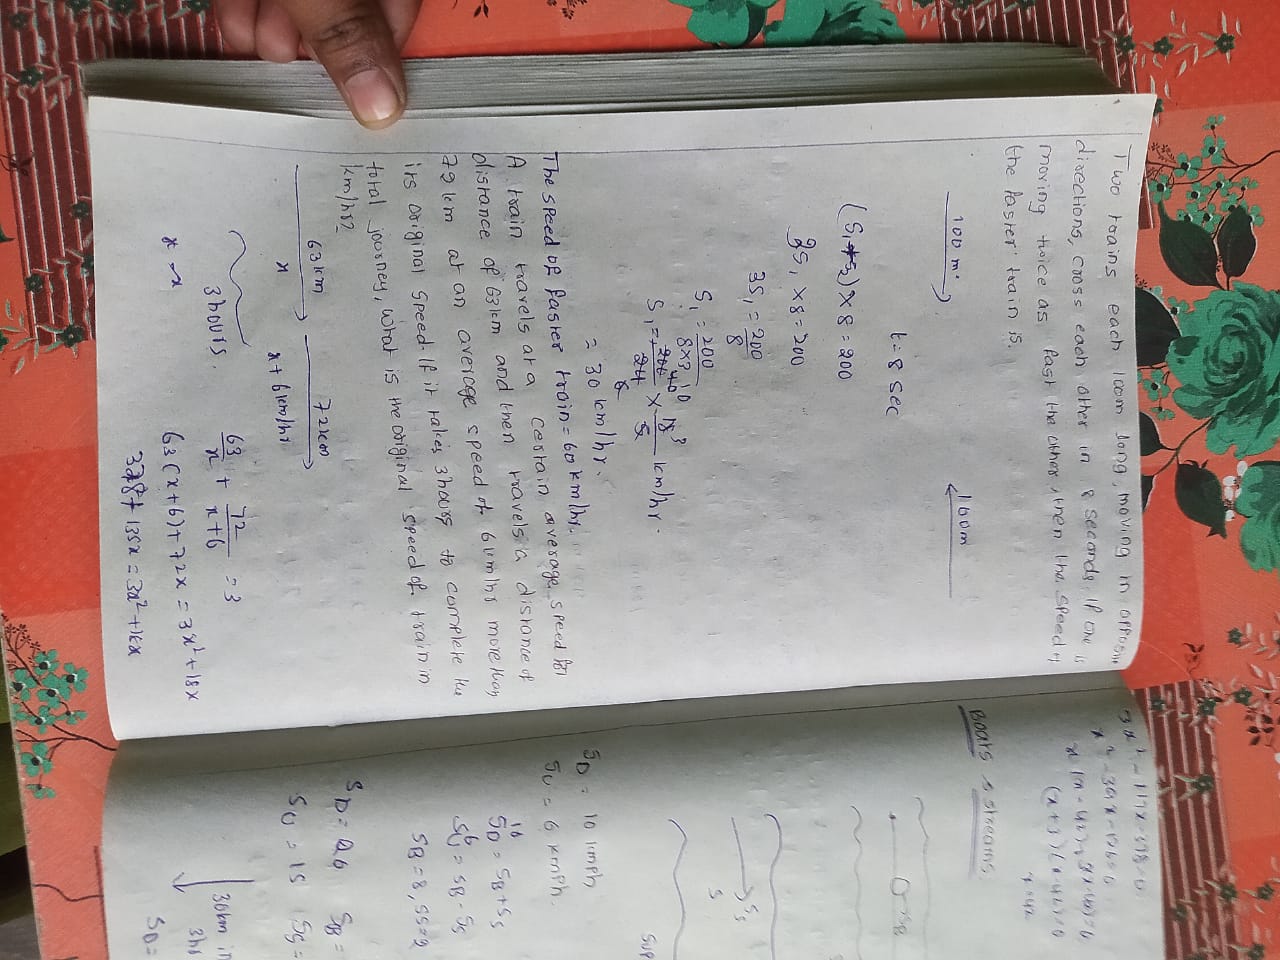 Two trains each 100m long, moving in opposite
directions, cross each other in 8 seconds. If one is
moving twice as fast the other, then the speed of
the faster train is.
100m. 100m
t = 8 sec
(S₁+S₂) × 8 = 200
3S₁ × 8 = 200
3S₁ = 200/8
S₁ = 200/8×3
S₁ = 200/24 × 18/5 km/hr.
= 30 km/hr.
The speed of faster train = 60 km/hr.
A train travels at a certain average speed for
distance of 63km and then travels a distance of
72km at an average speed of 6km/hr more than
its original speed. If it takes 3 hours to complete the
total journey, what is the original speed of train in
km/hr?
63km 72km
x x+6km/hr
3 hours.
63/x + 72/x+6 = 3
63(x+6)+72x = 3x²+18x
378+135x = 3x²+18x
3x² - 117x - 378 = 0
x² - 39x - 126 = 0
(x+3)(x-42)=0
Boats & streams
SB
Ss
S
SD = 10 kmph
SU = 6 kmph.
10
SD = SB+SS
6
SU = SB-SS
SB = 8, SS = 2
SU = 15
30km in
3hr
SD =